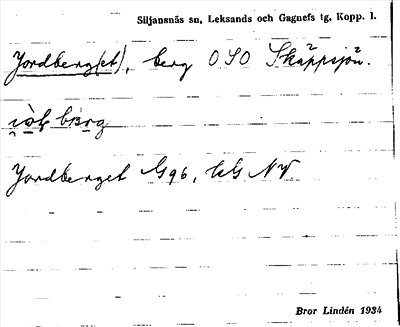 Siljansnäs sn, Leksands och Gagnefs tg, Kopp. l.
Jordberg(et), berg OSO Skäppsjön.
Jordberget G96, kG NV
Bror Lindén 1934